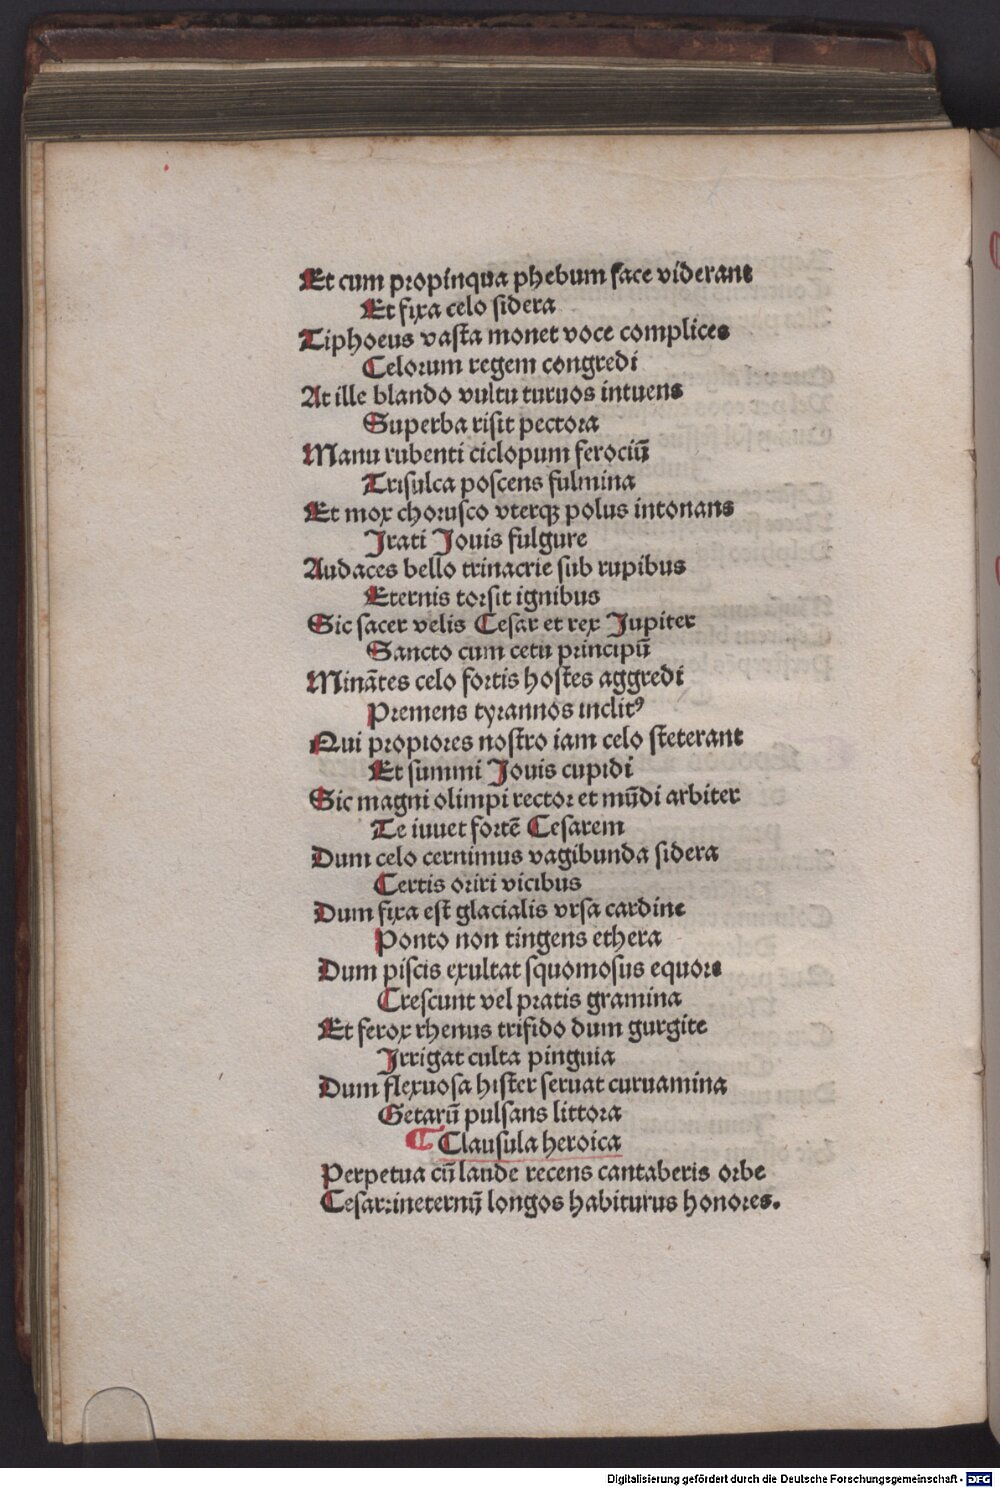 Et cum propinqua phebum face viderant
Et fixa celo sidera
Tiphoeus vasta monet voce complices
Celorum regem congredi
At ille blando vultu turuos intuens
Superba risit pectora
Manu rubenti ciclopum ferociū
Trisulca poscens fulmina
Et mox chorusco vterqꝫ polus intonans
Irati Iouis fulgure
Audaces bello trinacrie sub rupibus
Eternis torsit ignibus
Sic sacer velis Cesar et rex Jupiter
Sancto cum cetu principū
Minātes celo fortis hostes aggredi
Premens tyrannos inclitꝰ
Qui propiores nostro iam celo steterant
Et summi Jouis cupidi
Sic magni olimpi rector et mūdi arbiter
Te iuuet fortē Cesarem
Dum celo cernimus vagibunda sidera
Certis oriri vicibus
Dum fixa est glacialis vrsa cardine
Ponto non tingens ethera
Dum piscis exultat squomosus equore
Crescunt vel pratis gramina
Et ferox rhenus trifido dum gurgite
Irrigat culta pinguia
Dum flexuosa hister seruat curuamina
Getarū pulsans littora
¶ Clausula heroica
Perpetua cū laude recens cantaberis orbe
Cesar:ꝛineternū longos habiturus honores.
Digitalisierung gefördert durch die Deutsche Forschungsgemeinschaft - DFG